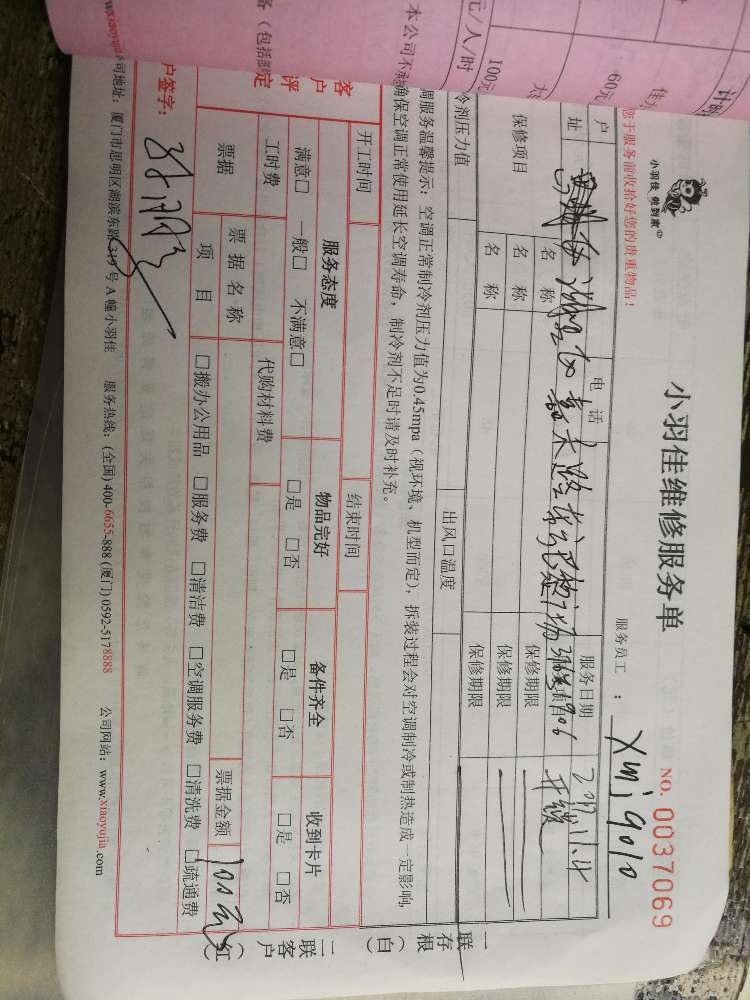 计
住
60元
大
100元
元/人/时
本公司不承
备(包括
小羽佳 做到家
您于服务前收拾好您的贵重物品!
小羽佳维修服务单
NO. 0037069
服务员工: XMj9010
户
电 话
服务日期
址
保修项目
名 称
保修期限
开锁
名 称
保修期限
名 称
保修期限
冷剂压力值
出风口温度
调服务温馨提示:空调正常制冷剂压力值为0.45mpa(视环境、机型而定),拆装过程会对空调制冷或制热造成一定影响,
确保空调正常使用延长空调寿命,制冷剂不足时请及时补充。
开工时间
结束时间
客户评定
服务态度
物品完好
备件齐全
收到卡片
满意□ 一般□ 不满意□
□是 □否
□是 □否
□是 □否
工时费
代购材料费
票据
票据名称
票据金额
100元
项 目
□搬办公用品 □服务费 □清洁费 □空调服务费 □清洗费 □疏通费
户签字:
一联存根(白)
二联客户(红)
www.xiaoyujia
司地址:厦门市思明区湖滨东路319号A幢小羽佳 服务热线:(全国)400-6655-888 (厦门)0592-5178888 公司网站:www.xiaoyujia.com